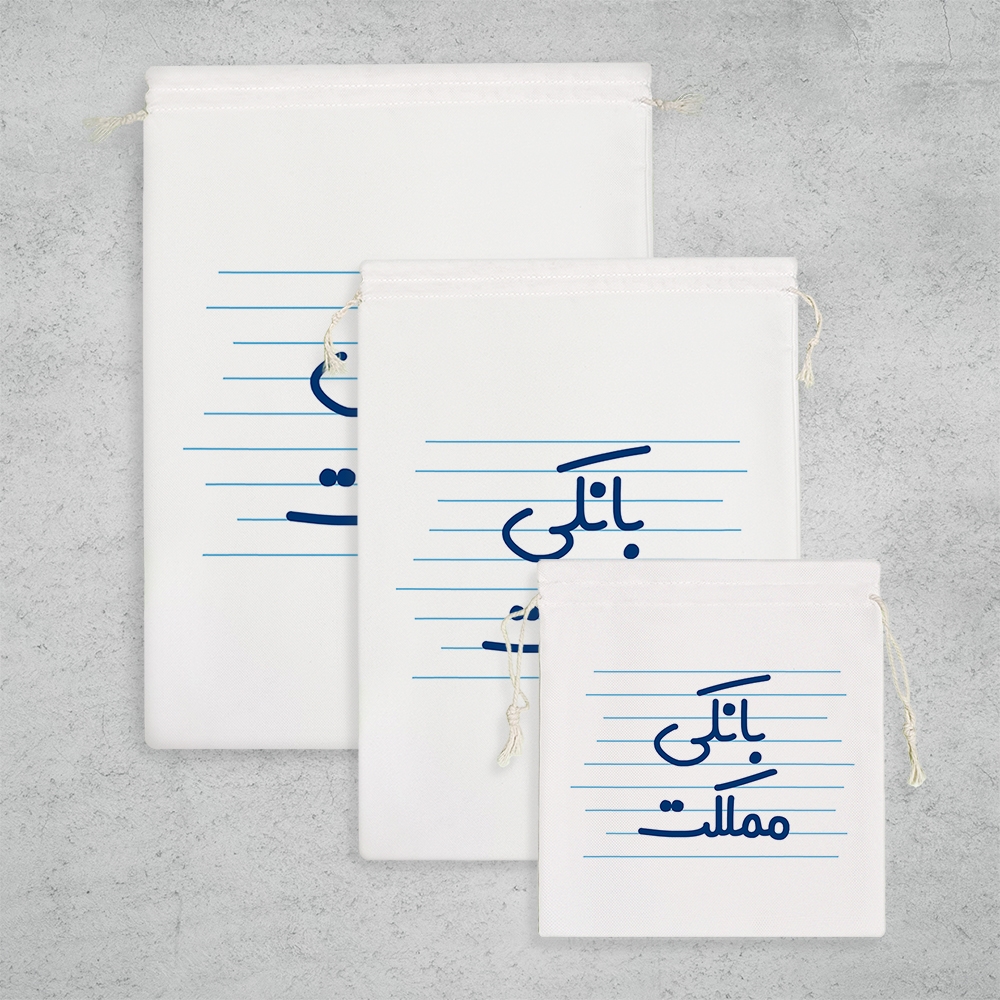 بانکی
بانکی
مملکت